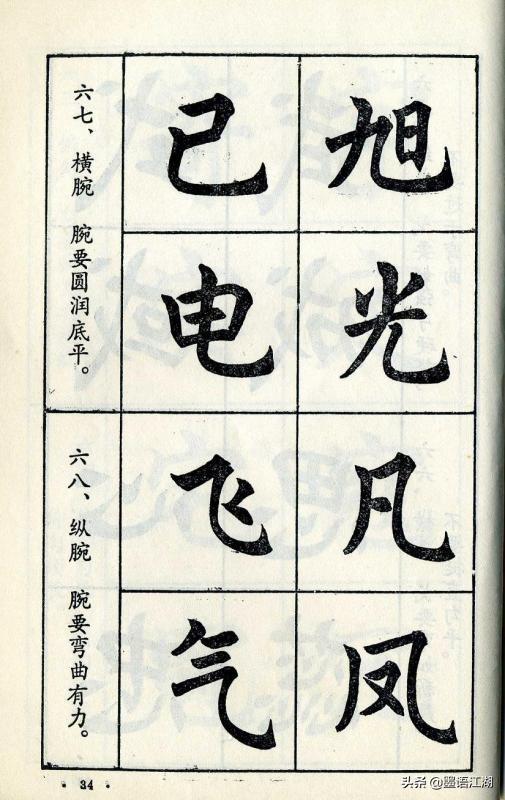 旭
光
凡
凤
已
电
飞
气
六七、横腕 腕要圆润底平。
六八、纵腕 腕要弯曲有力。
· 34 ·
头条 @墨语江湖